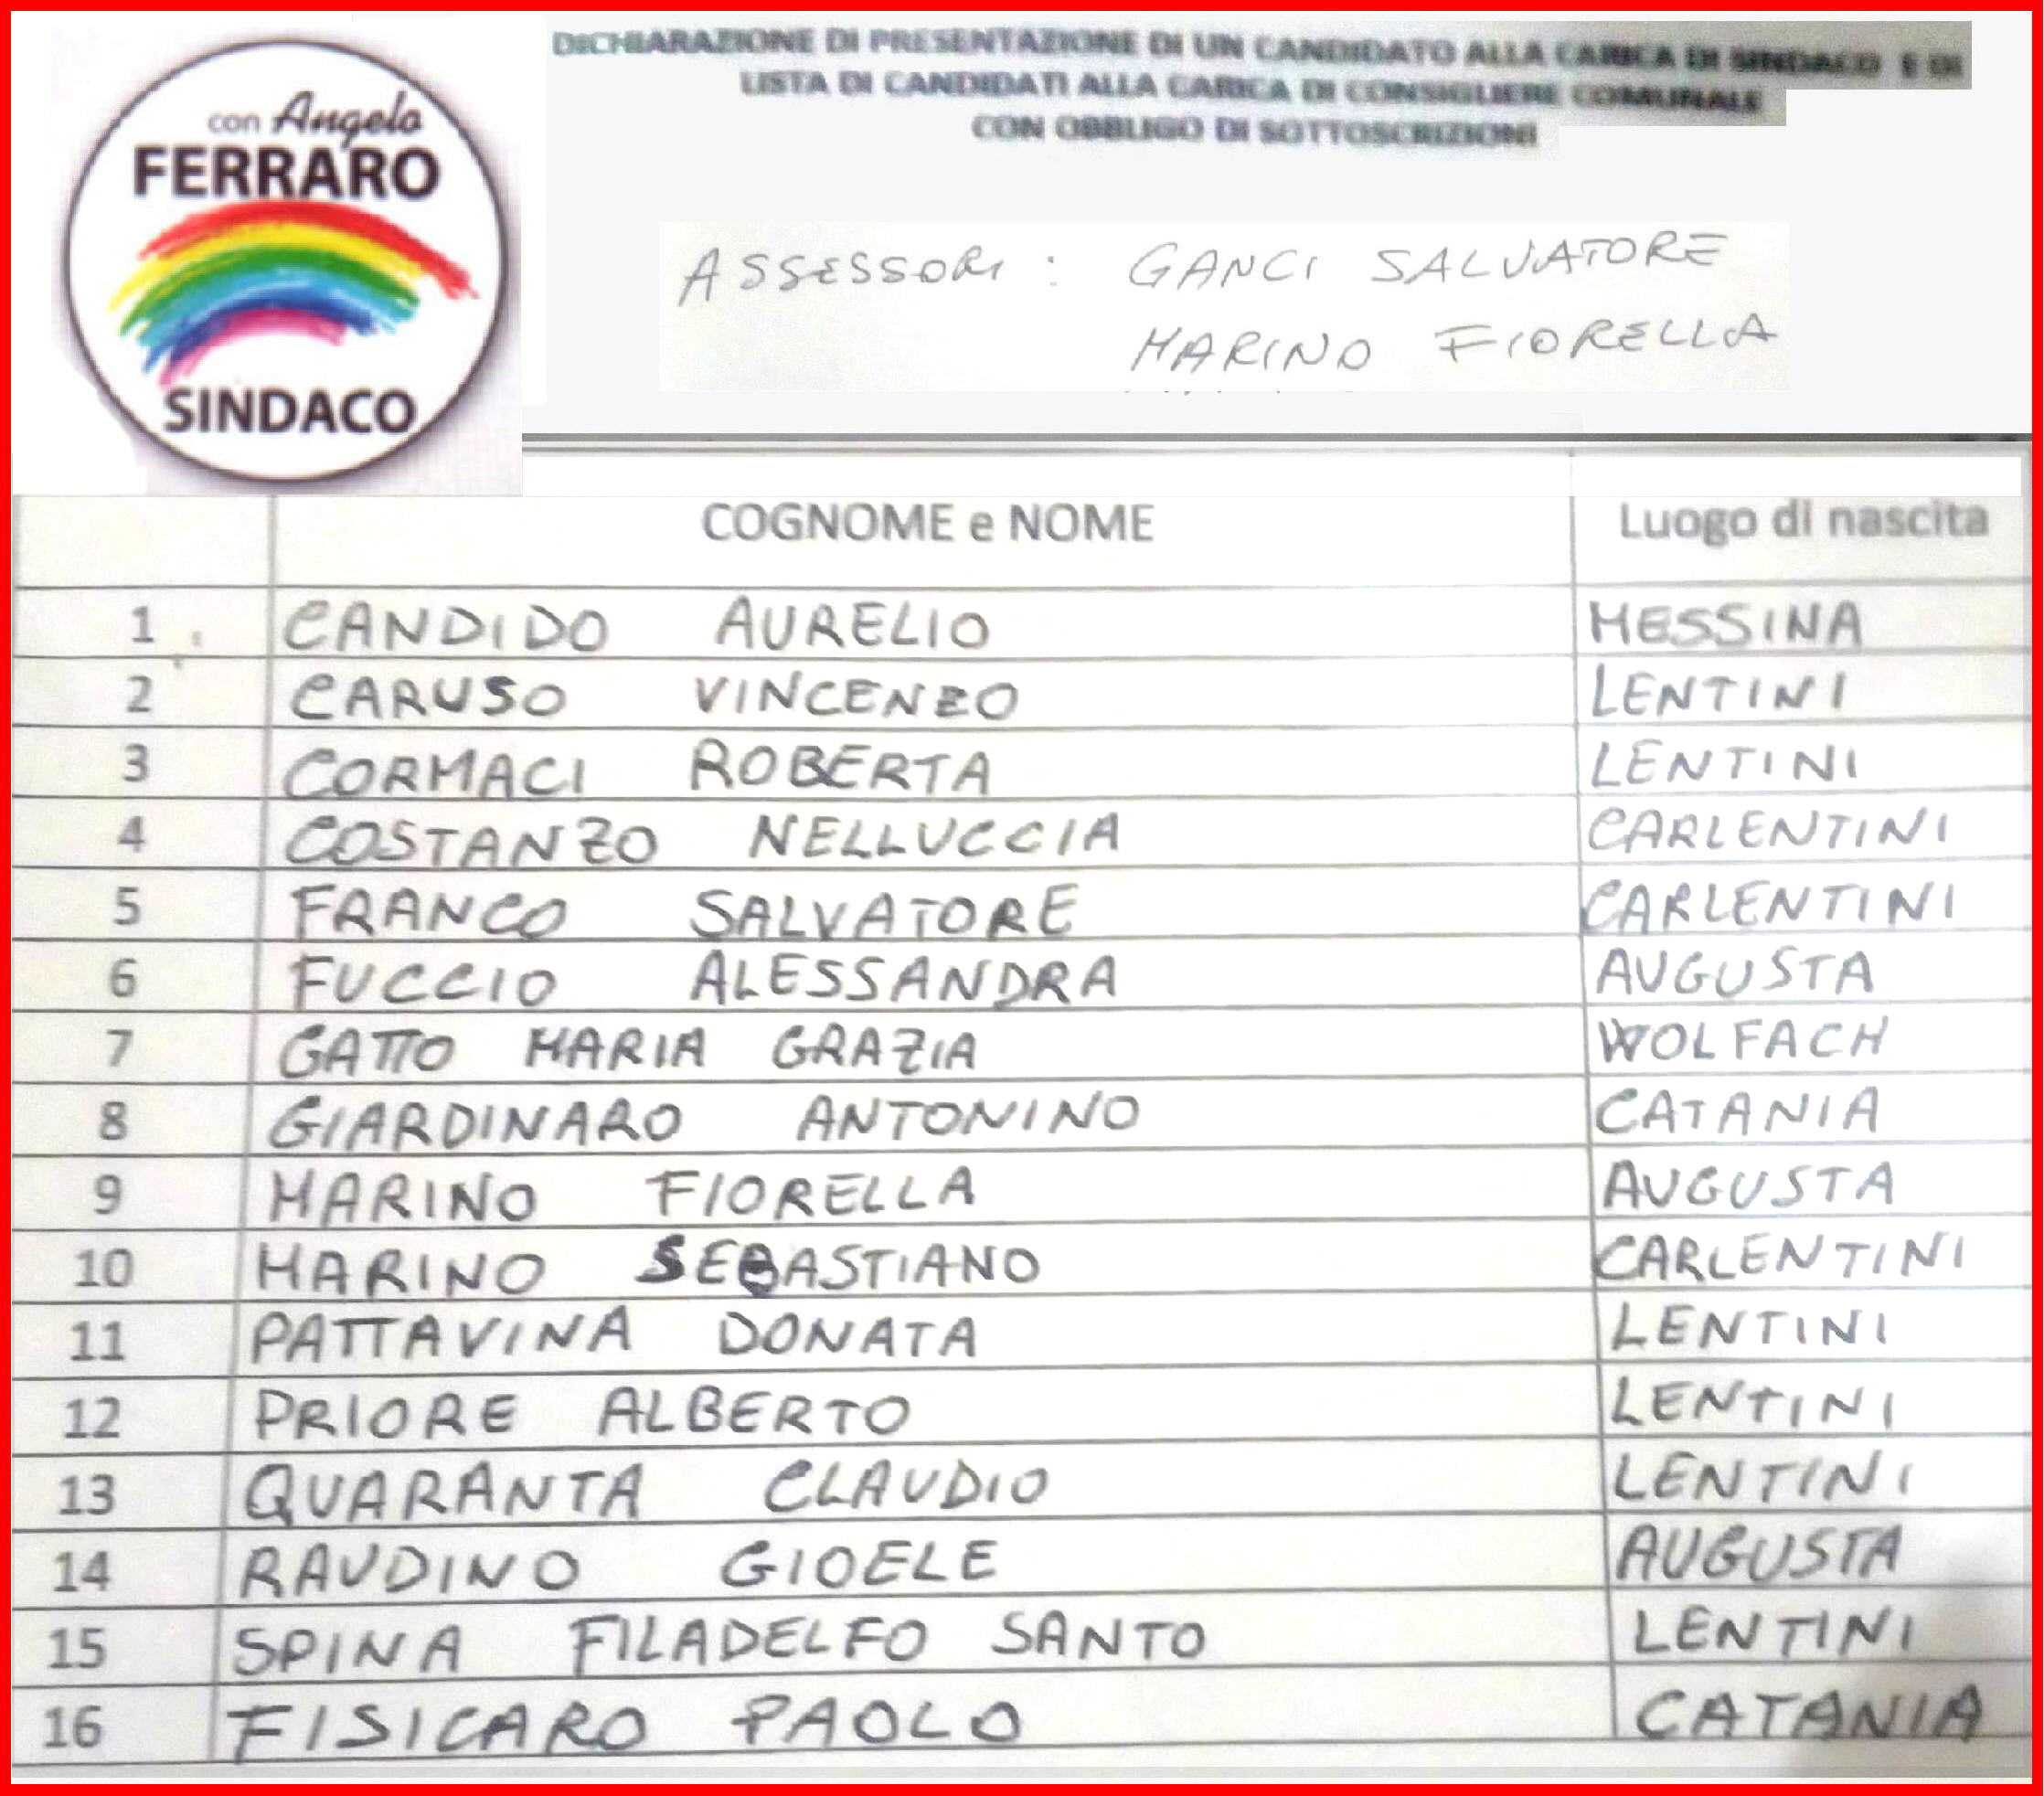 con Angelo
FERRARO
SINDACO
DICHIARAZIONE DI PRESENTAZIONE DI UN CANDIDATO ALLA CARICA DI SINDACO E DI
LISTA DI CANDIDATI ALLA CARICA DI CONSIGLIERE COMUNALE
CON OBBLIGO DI SOTTOSCRIZIONI
ASSESSORI : GANCI SALVATORE
MARINO FIORELLA
COGNOME e NOME Luogo di nascita
1 CANDIDO AURELIO MESSINA
2 CARUSO VINCENZO LENTINI
3 CORMACI ROBERTA LENTINI
4 COSTANZO NELLUCCIA CARLENTINI
5 FRANCO SALVATORE CARLENTINI
6 FUCCIO ALESSANDRA AUGUSTA
7 GATTO MARIA GRAZIA WOLFACH
8 GIARDINARO ANTONINO CATANIA
9 MARINO FIORELLA AUGUSTA
10 MARINO SEBASTIANO CARLENTINI
11 PATTAVINA DONATA LENTINI
12 PRIORE ALBERTO LENTINI
13 QUARANTA CLAUDIO LENTINI
14 RAUDINO GIOELE AUGUSTA
15 SPINA FILADELFO SANTO LENTINI
16 FISICARO PAOLO CATANIA